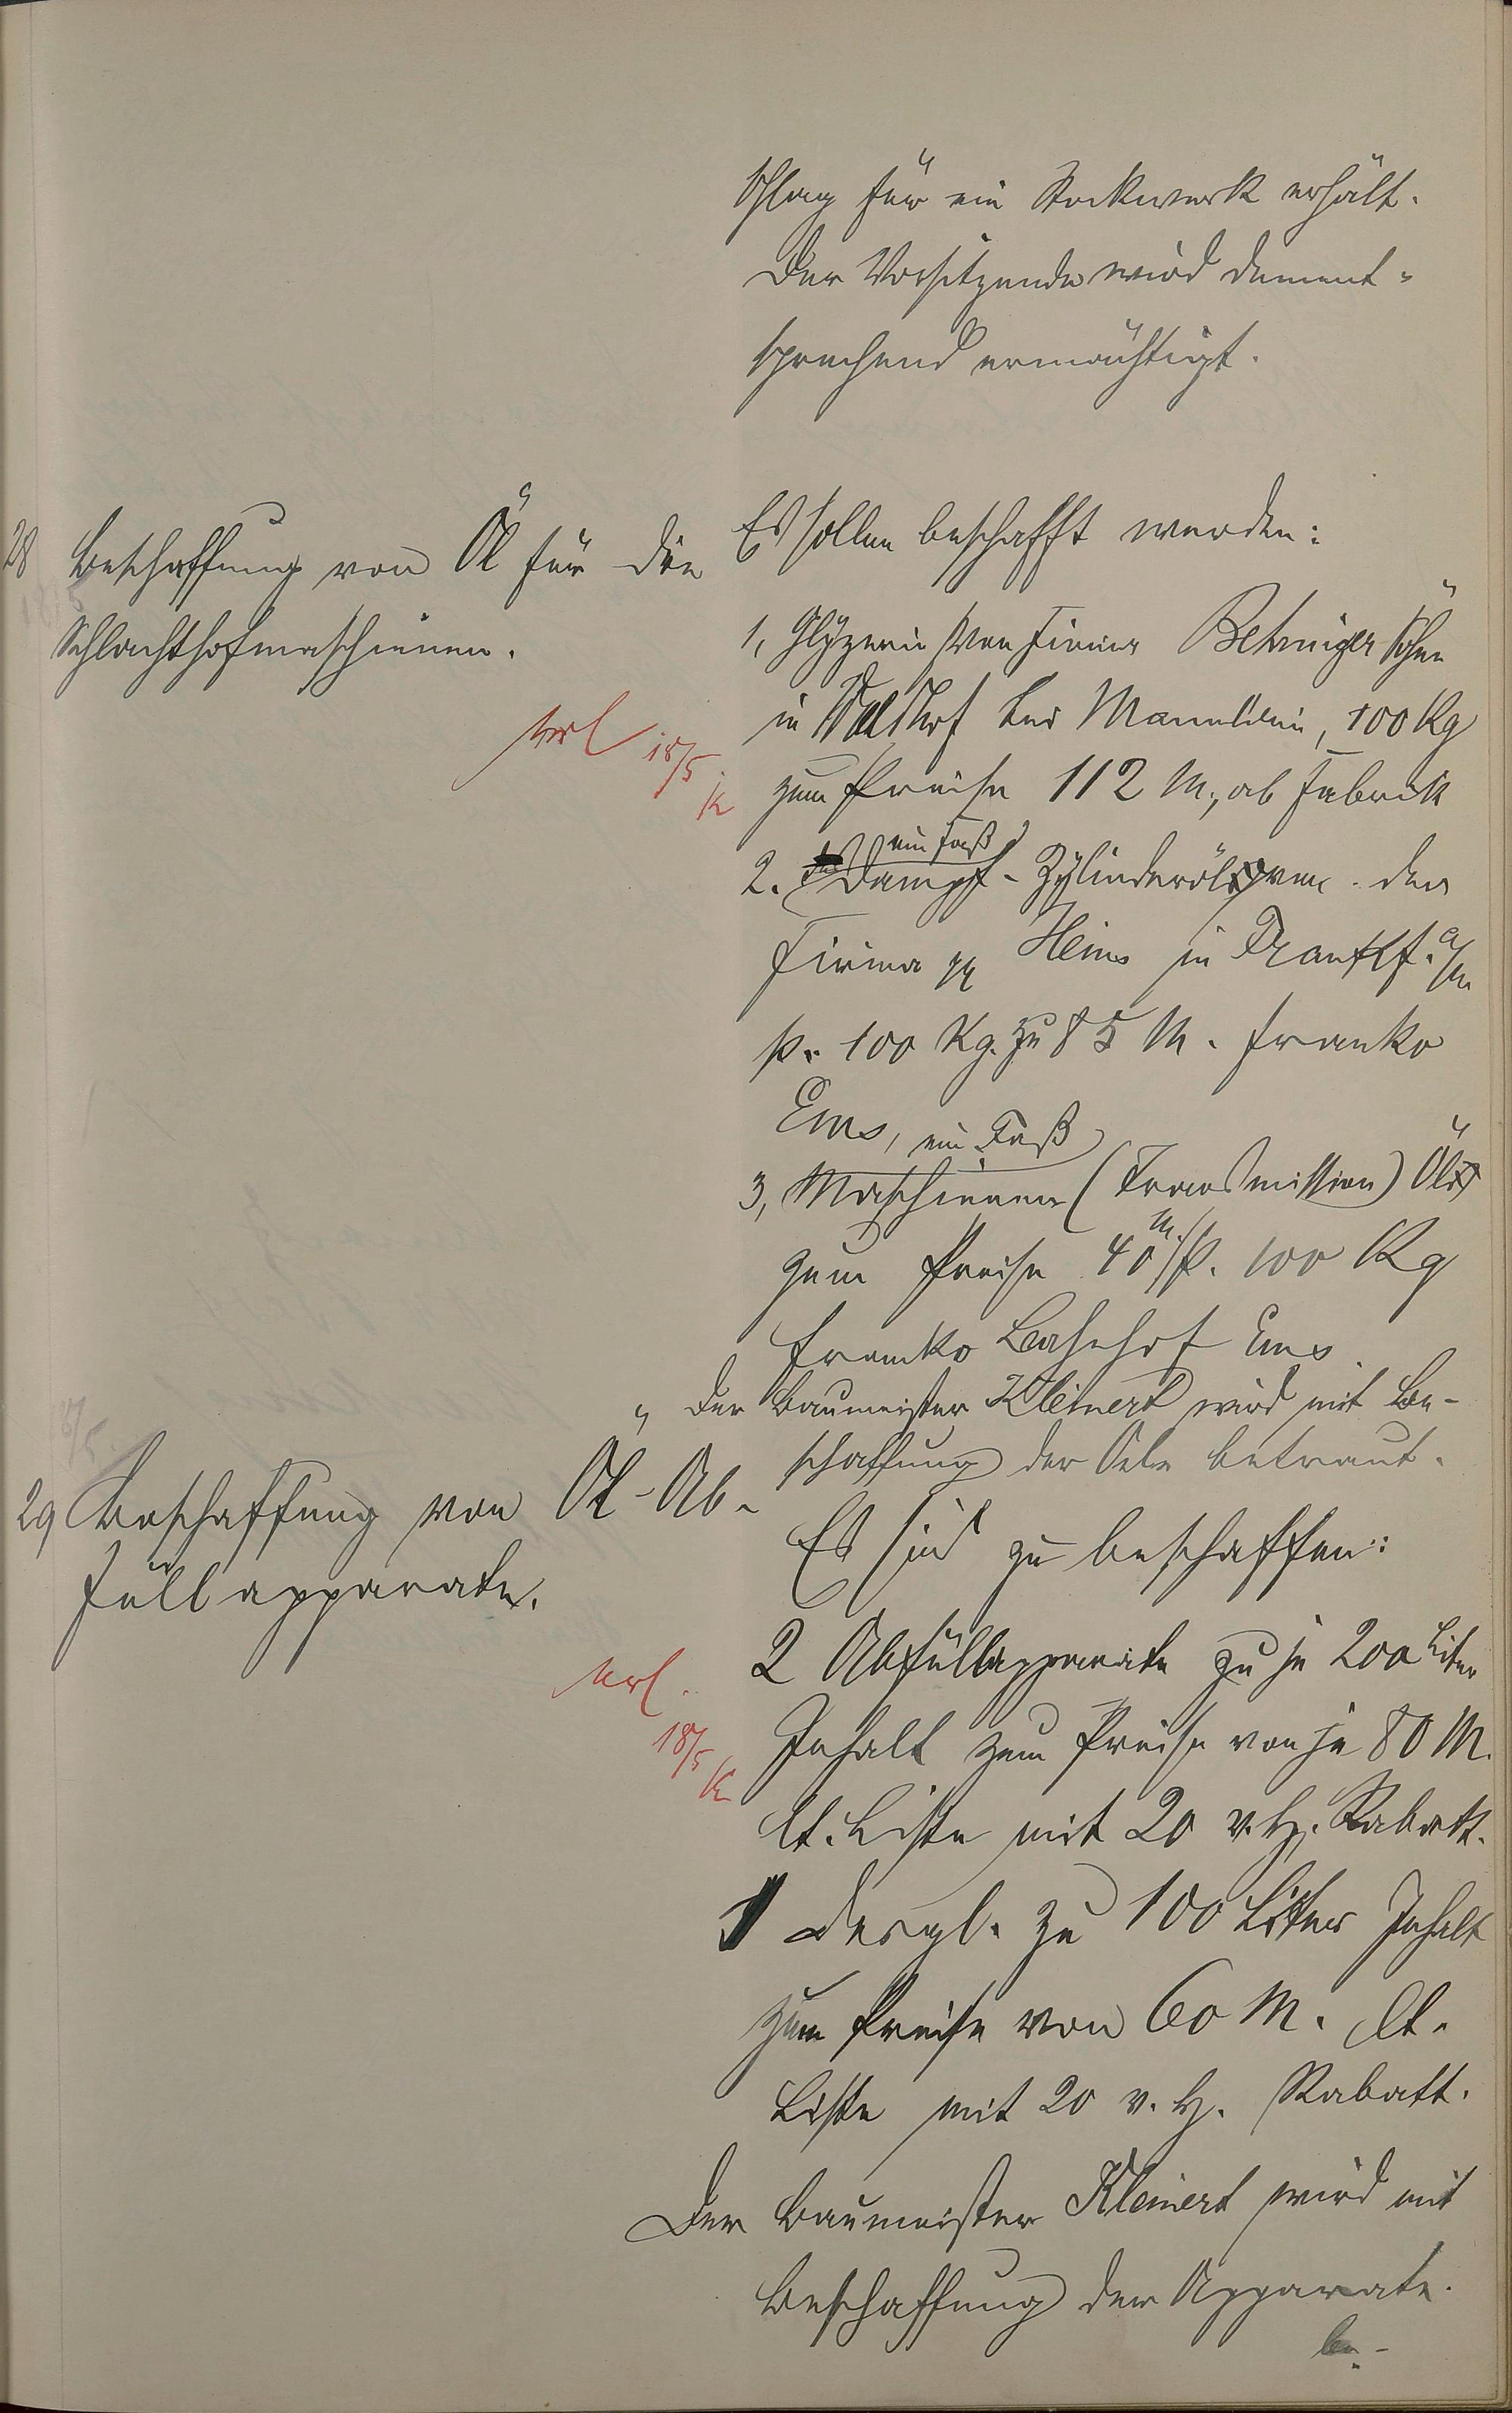 schlag für ein Stockwerk erhält.
Der Vorsitzende wird dement-
sprechend ermächtigt.
28 Beschaffung von Öl für die
Schlachthofmaschienen.
erl 18/5.
K
Es sollen beschafft werden:
1, Glyzerin von Firma Söhne
in Waldhof bei Mannheim, 100 Kg
zum Preise 112 M., ab Fabrik
ein Faß
2. Dampf-Zylinderöl von der
Firma Heins in Frankf. a/M.
p. 100 Kg. zu 85 M. franko
Ems, ein Faß
3, Maschienen (Transmission) Öl
zum Preise 40 M. p. 100 Kg
franko Bahnhof Ems
Der Baumeister Kleinert wird mit Be-
schaffung der Oele betraut.
29 Beschaffung von Öl-Ab-
füllapparate.
erl.
18/5
K
Es sind zu beschaffen:
2 Abfüllapparate zu je 200 Liter
Inhalt zum Preise von je 80 M.
lt. Liste mit 20 v. H. Rabatt.
1 desgl. zu 100 Liter Inhalt
zum Preise von 60 M. lt.
Liste mit 20 v. H. Rabatt.
Der Baumeister Kleinert wird mit
Beschaffung der Apparate.
be-